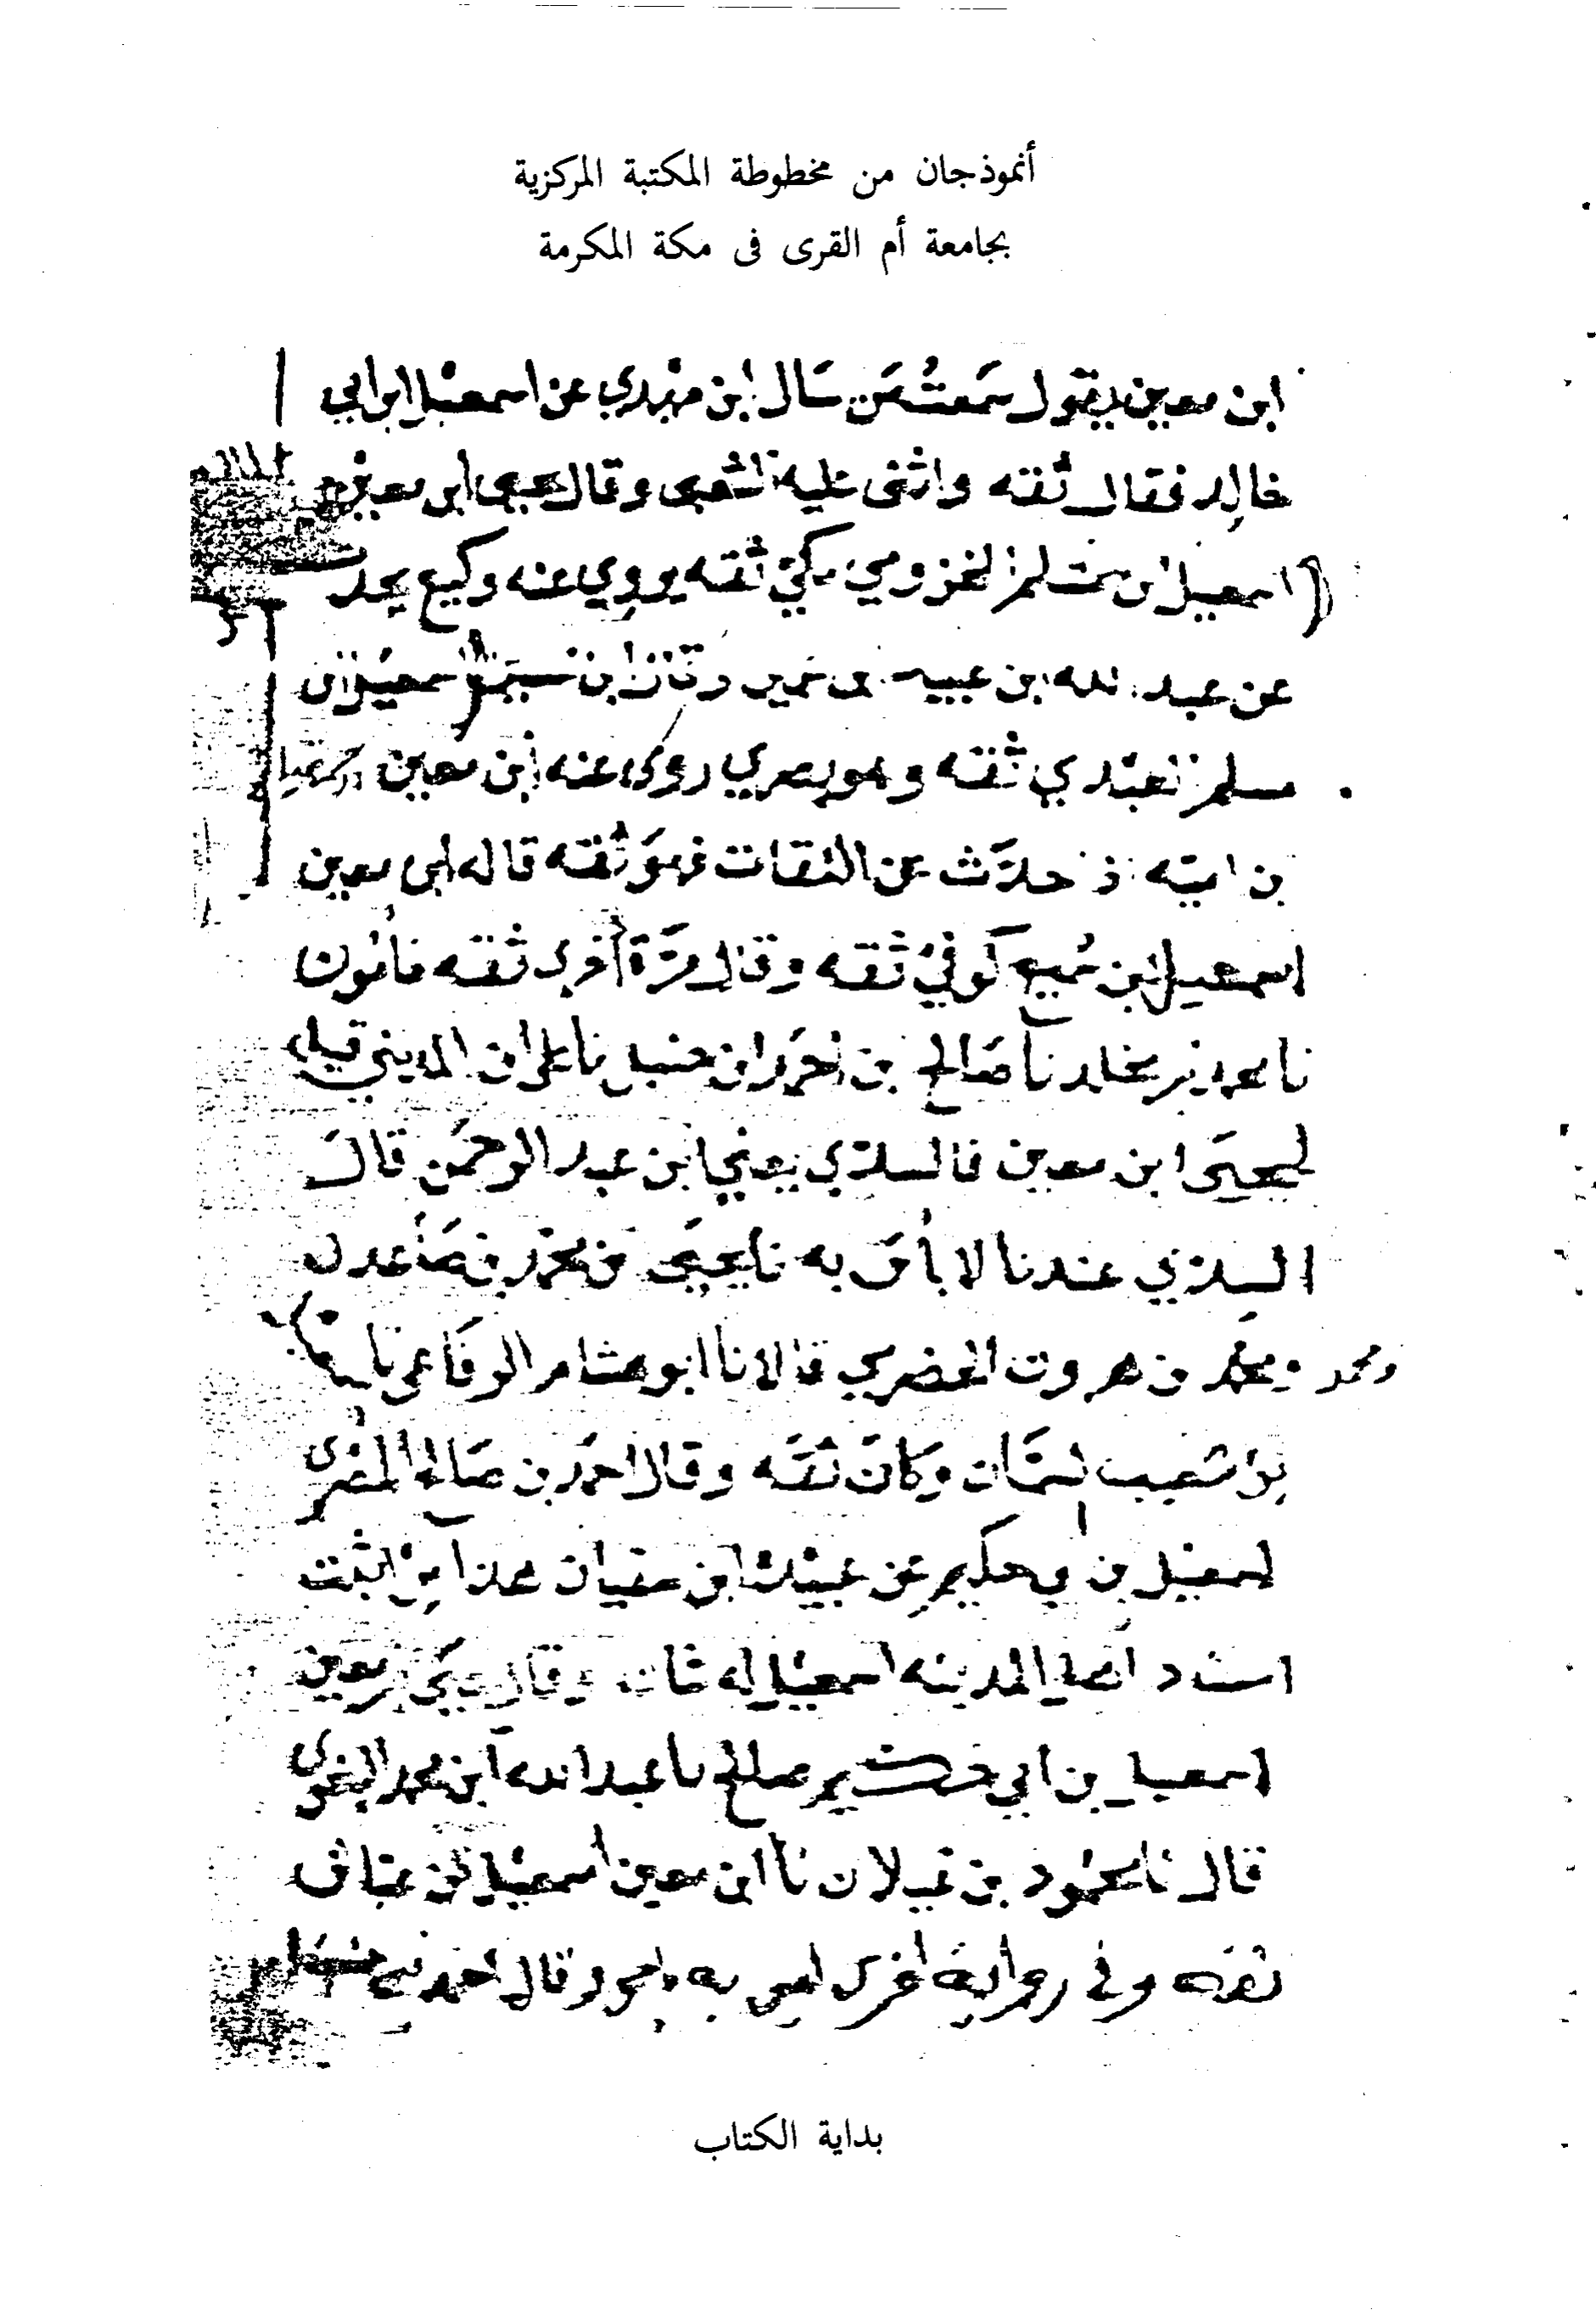 أنموذجان من مخطوطة المكتبة المركزية
بجامعة أم القرى فى مكة المكرمة
ابن معين يقول سَمعتُ مَن سَال ابن مهدي عن اسمعيل ابن ابي
خالد فقال ثقه واثنى عليه الشعبى وقال يحيى ابن معين
اسمعيل ابن مسلم المخزومي مكي ثقه يروي عنه وكيع يحدث
عن عبد الله ابن عبيد بن عمير وقال ابن اسمعيل ابن
مسلم العبدي ثقه وهو بصري روى عنه ابن معين
بن اميّه اذ حدّث عن الثقات فهوَ ثقه قاله ابن معين
اسمعيل ابن سُميع كوفيّ ثقه وقال مَرّة أخرى ثقه مأمون
نا محمد بن مخلد نا صَالح بن احمَد ابن حنبل نا على ابن المديني قيل
ليحيَى ابن معين فالسدّي يعني ابن عبد الرحمَن قالَ
السدّي عندنا لا بأس به نا يحيىَ بن محمّد بن صَاعد ن
ومحمد بن هروت الحضرمي قالا نا ابو هشام الرفاعى نا
بن شعيب السمّان وكانَ ثقَه وقال احمَد بن صَالح المصرى
اسمعيل بن حكيم عن عبيدة ابن سفيان هذا من اثبت
اسناد اهل المدينه اسمعيل له شان وقال يحيَى بن معين
اسمعيل بن ابي صالح نا عبد الله ابن محمد البغوى
قال نا محمُود بن غيلان نا ابن معين اسمعيل بن عيّاش
ثقه وفي رواية اخرى ليس به وقال احمد
بداية الكتاب